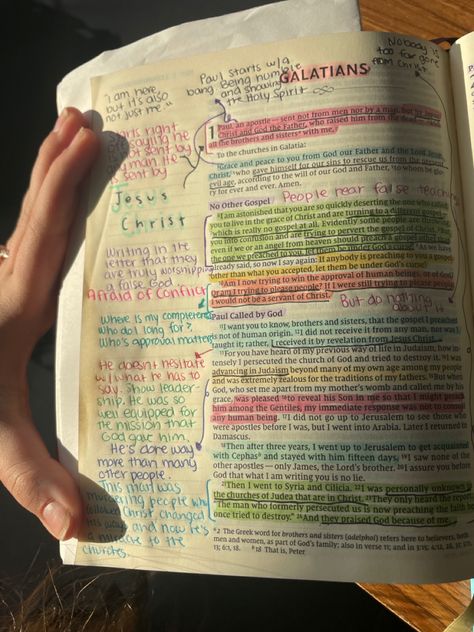 Nobody is
too far gone
from Christ
Paul starts w/ a
bang. Being humble
and showing
the Holy Spirit
"I am here
but it's also
not just me"
GALATIANS
1 Paul, an apostle — sent not from men nor by a man, but by Jesus
Christ and God the Father, who raised him from the dead —
all the brothers and sisters with me,
To the churches in Galatia:
Grace and peace to you from God our Father and the Lord Jesus
Christ, who gave himself for our sins to rescue us from the present
evil age, according to the will of our God and Father, to whom be glo-
ry for ever and ever. Amen.
starts right
saying he
not sent by
any man. He
is sent by
Jesus
Christ
No Other Gospel
People hear false teaching
I am astonished that you are so quickly deserting the one who called
you to live in the grace of Christ and are turning to a different gospel —
which is really no gospel at all. Evidently some people are throwing
you into confusion and are trying to pervert the gospel of Christ.
even if we or an angel from heaven should preach a gospel other than
the one we preached to you, let them be under God's curse! As we have
already said, so now I say again: If anybody is preaching to you a gospel
other than what you accepted, let them be under God's curse!
Am I now trying to win the approval of human beings, or of God?
Or am I trying to please people? If I were still trying to please people,
I would not be a servant of Christ.
Writing in the
letter that they
are truly worshipping
a false God
Afraid of Conflict
But do nothing
about it
Where is my competence
Who do I long for?
Who's approval matters
Paul Called by God
I want you to know, brothers and sisters, that the gospel I preached
is not of human origin. I did not receive it from any man, nor was I
taught it; rather, I received it by revelation from Jesus Christ.
For you have heard of my previous way of life in Judaism, how in-
tensely I persecuted the church of God and tried to destroy it. I was
advancing in Judaism beyond many of my own age among my people
and was extremely zealous for the traditions of my fathers. But when
God, who set me apart from my mother's womb and called me by his
grace, was pleased to reveal his Son in me so that I might preach
him among the Gentiles, my immediate response was not to consult
any human being. I did not go up to Jerusalem to see those who
were apostles before I was, but I went into Arabia. Later I returned to
Damascus.
Then after three years, I went up to Jerusalem to get acquainted
with Cephas and stayed with him fifteen days. I saw none of the
other apostles — only James, the Lord's brother. I assure you before
God that what I am writing you is no lie.
Then I went to Syria and Cilicia. I was personally unknown to
the churches of Judea that are in Christ. They only heard the report:
"The man who formerly persecuted us is now preaching the faith he
once tried to destroy." And they praised God because of me.
He doesn't hesitate
w/ what he has to
say. Shows leader
ship. He was so
well equipped for
the mission that
God gave him.
He's done way
more than many
other people.
This man was
murdering people who
followed Christ, changed
his ways and now he's
a miracle to the
churches.
2 The Greek word for brothers and sisters (adelphoi) refers here to believers, both
men and women, as part of God's family; also in verse 11; and in 3:15; 4:12, 28, 31;
13; 6:1, 18. 18 That is, Peter